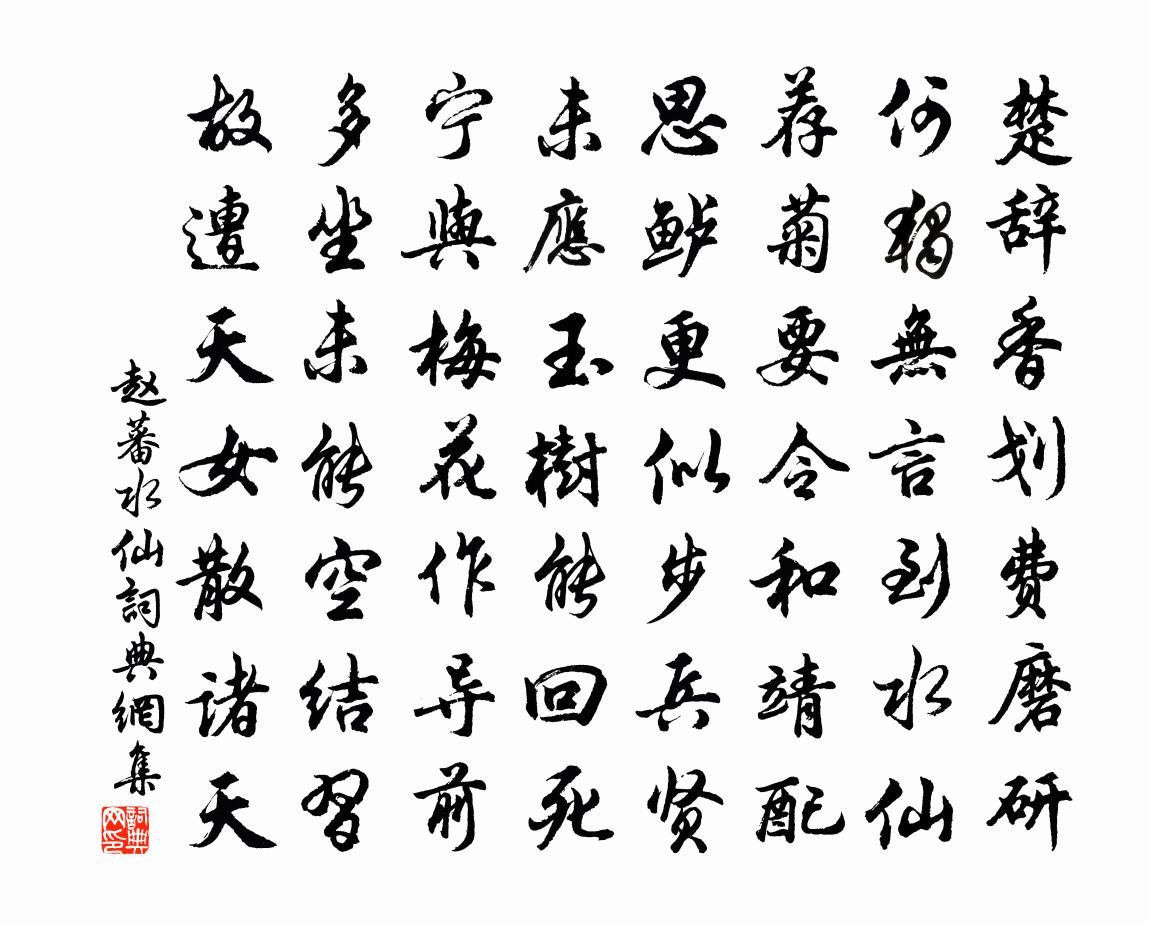 楚辞香划费磨研
何独無言到水仙
荐菊要令和靖配
思鲈更似步兵贤
未應玉樹能回死
宁與梅花作导前
多坐未能空结習
故遭天女散诸天
赵蕃水仙詞典網集
詞典网印